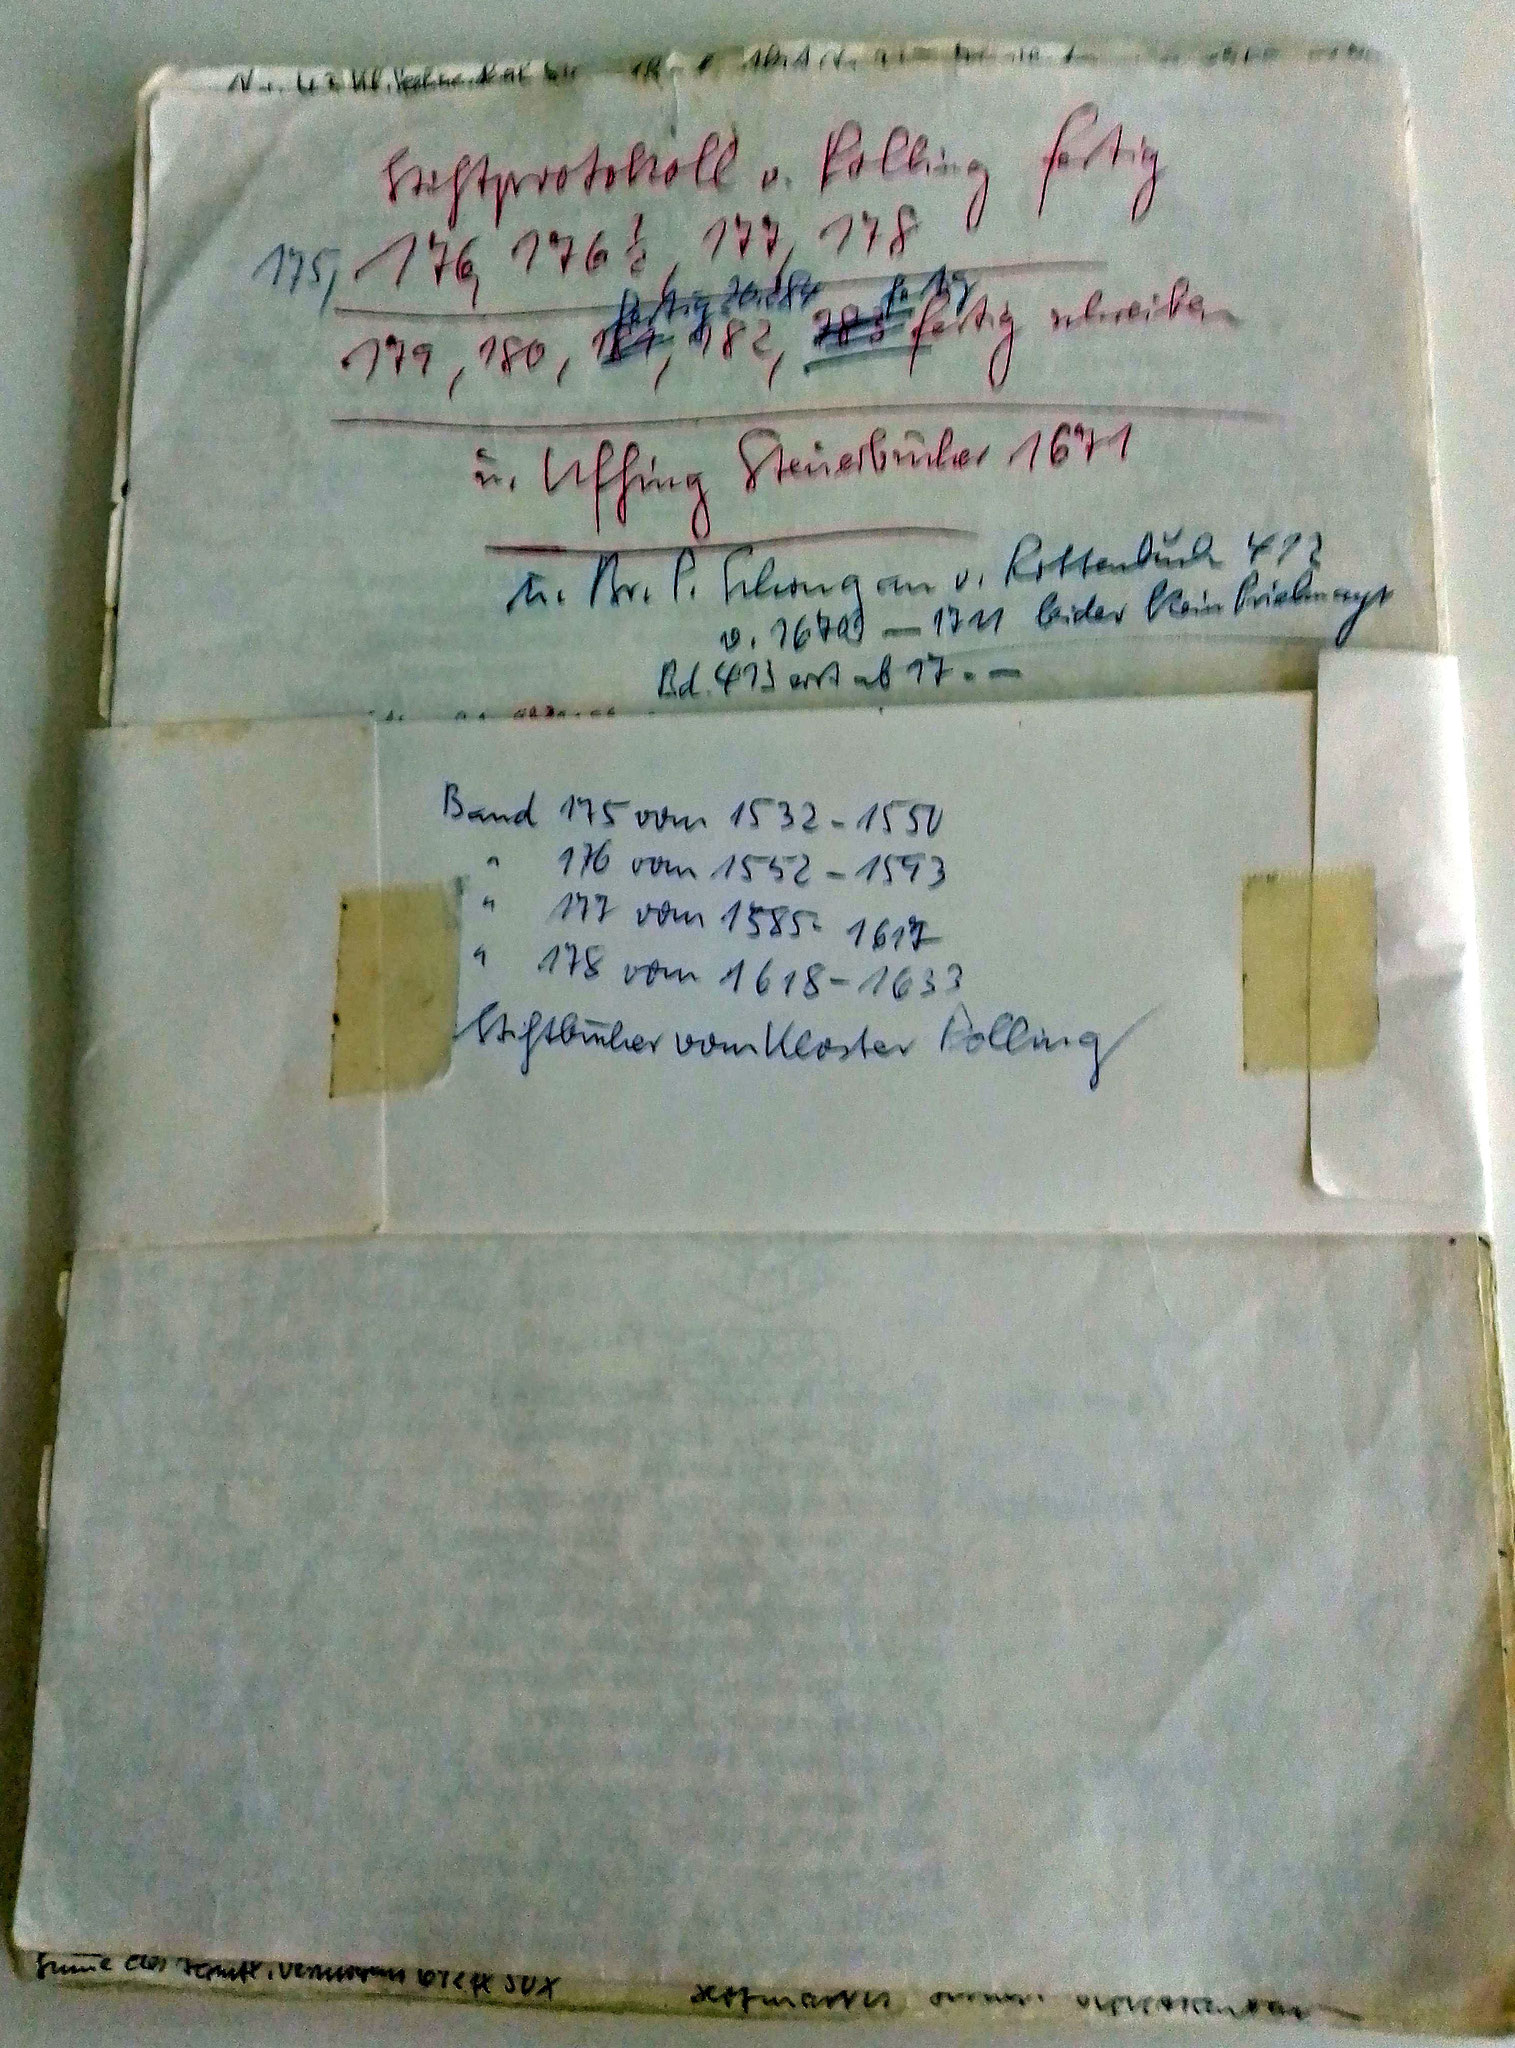 Stiftprotokoll v. Polling fertig
175, 176, 176 1/2, 177, 178
fertig fertig
179, 180, 181, 182, 183 fertig schreiben
u. Uffing Steuerbücher 1671
u. Br. P. Schongau v. Rottenbuch 413
v. 1670 — 1711 leider kein Prielmayr
Bd. 413 erst ab 17.—
Band 175 vom 1532 - 1550
" 176 vom 1552 - 1593
" 177 vom 1585 - 1617
" 178 vom 1618 - 1633
Stiftbücher vom Kloster Polling